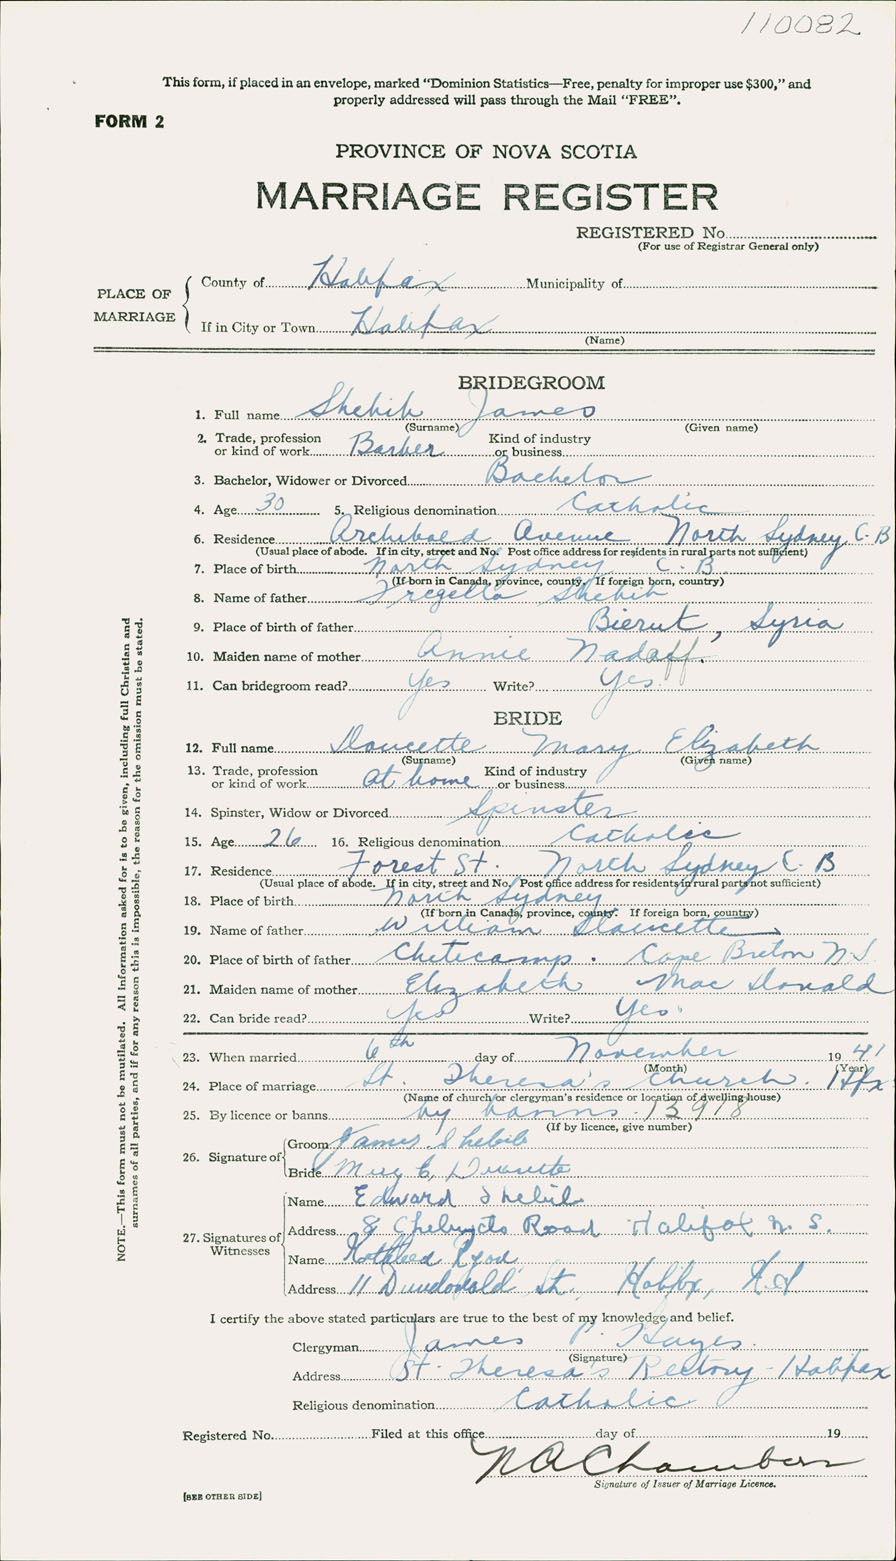 110082
This form, if placed in an envelope, marked “Dominion Statistics—Free, penalty for improper use $300,” and
properly addressed will pass through the Mail “FREE”.
FORM 2
PROVINCE OF NOVA SCOTIA
MARRIAGE REGISTER
REGISTERED No.
(For use of Registrar General only)
PLACE OF MARRIAGE
County of Halifax Municipality of
If in City or Town Halifax
(Name)
BRIDEGROOM
1. Full name Shebib James
(Surname) (Given name)
2. Trade, profession or kind of work Barber Kind of industry or business
3. Bachelor, Widower or Divorced Bachelor
4. Age 30 5. Religious denomination Catholic
6. Residence Archibald Avenue North Sydney C.B
(Usual place of abode. If in city, street and No. Post office address for residents in rural parts not sufficient)
7. Place of birth North Sydney C.B
(If born in Canada, province, county. If foreign born, country)
8. Name of father Shebib
9. Place of birth of father Bierut, Syria
10. Maiden name of mother Annie Nadaff.
11. Can bridegroom read? Yes Write? Yes.
BRIDE
12. Full name Doucette Mary Elizabeth
(Surname) (Given name)
13. Trade, profession or kind of work at home Kind of industry or business
14. Spinster, Widow or Divorced Spinster
15. Age 26 16. Religious denomination Catholic
17. Residence Forest St. North Sydney C.B
(Usual place of abode. If in city, street and No. Post office address for residents in rural parts not sufficient)
18. Place of birth North Sydney
(If born in Canada, province, county. If foreign born, country)
19. Name of father William Doucette
20. Place of birth of father Cheticamp. Cape Breton N.S.
21. Maiden name of mother Elizabeth Mac Donald
22. Can bride read? Yes Write? Yes.
23. When married 6th day of November 1941
(Month) (Year)
24. Place of marriage St. Theresa's Church. Hfx
(Name of church or clergyman's residence or location of dwelling house)
25. By licence or banns by banns. 13918
(If by licence, give number)
26. Signature of
Groom James Shebib
Bride Mary E. Doucette
27. Signatures of Witnesses
Name Edward Shebib
Address 8 Chebucto Road Halifax N.S.
Name Ryan
Address 11 Dundonald St., Halifax, N.S
I certify the above stated particulars are true to the best of my knowledge and belief.
Clergyman James P. Hayes.
(Signature)
Address St. Theresa's Rectory - Halifax
Religious denomination Catholic
Registered No. Filed at this office day of 19
N A Chambers
Signature of Issuer of Marriage Licence.
[SEE OTHER SIDE]
NOTE.—This form must not be mutilated. All information asked for is to be given, including full Christian and
surnames of all parties, and if for any reason this is impossible, the reason for the omission must be stated.